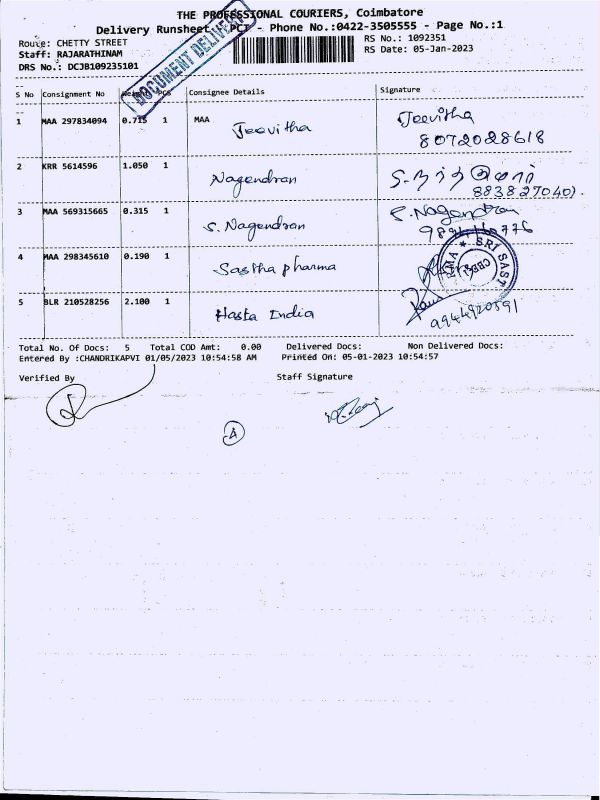 THE PROFESSIONAL COURIERS, Coimbatore
Delivery Runsheet PCT - Phone No.:0422-3505555 - Page No.:1
Route: CHETTY STREET
RS No.: 1092351
Staff: RAJARATHINAM
RS Date: 05-Jan-2023
DRS No.: DCJB109235101
DOCUMENT DELIVERY
S No Consignment No Weight PCS Consignee Details Signature
1 MAA 297834094 0.715 1 MAA Jeevitha Jeevitha
8072028618
2 KRR 5614596 1.050 1 Nagendran
3 MAA 569315665 0.315 1 S. Nagendran S. Nagendran
4 MAA 298345610 0.190 1 Sastha pharma
SRI SAST
CBE
5 BLR 210528256 2.100 1 Hasta India
Total No. Of Docs: 5 Total COD Amt: 0.00 Delivered Docs: Non Delivered Docs:
Entered By :CHANDRIKAPVI 01/05/2023 10:54:58 AM Printed On: 05-01-2023 10:54:57
Verified By Staff Signature
A